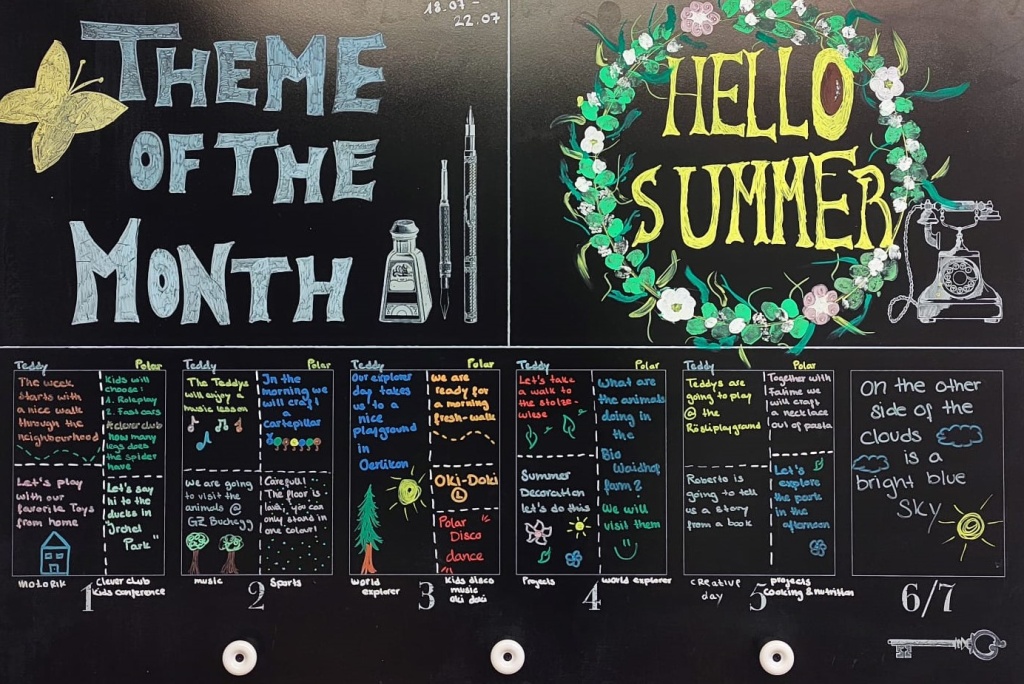 18.07 -
22.07
THEME
OF THE
MONTH
HELLO
SUMMER
Teddy Polar
The week
starts with
a nice walk
through the
neighbourhood
Let's play
with our
favorite Toys
from home
Kids will
choose:
1. Roleplay
2. Fast cars
#cleverclub
how many
legs does
the spider
have
Let's say
hi to the
ducks in
"Irchel
Park"
Motorik
1
Clever club
Kids conference
Teddy Polar
The Teddys
will enjoy a
music lesson
We are
going to
visit the
animals @
GZ Buchegg
In the
morning we
will craft
a
caterpillar
Careful!
The floor is
lava, you can
only stand in
one colour!
music
2
Sports
Teddy Polar
Our explorer
day takes
us to a
nice
playground
in
Oerlikon
We are
ready for
a morning
fresh-walk
Oki-Doki
Polar
Disco
dance
world
explorer
3
Kids disco
music
oki doki
Teddy Polar
Let's take
a walk to
the stolze-
wiese
Summer
Decoration
let's do this
What are
the animals
doing in
the
Bio
Waidhof
farm?
We will
visit them
Projects
4
world explorer
Teddy Polar
Teddys are
going to play
@ the
Rösliplayground
Roberto is
going to tell
us a story
from a book
Together with
Fatime we
will craft
a necklace
out of pasta
Let's
explore
the park
in the
afternoon
creative
day
5
projects
Cooking & nutrition
On the other
side of the
clouds
is a
bright blue
sky
6/7